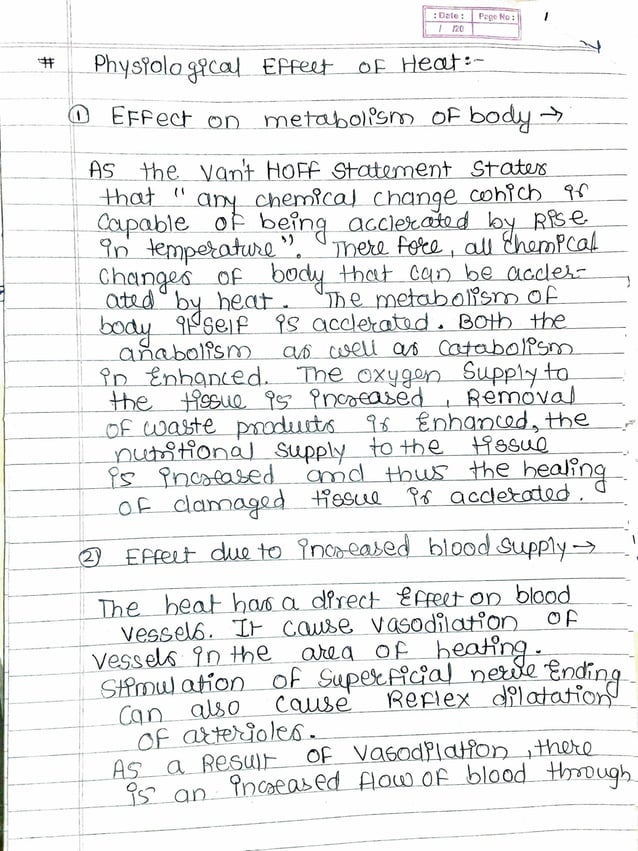 : Date : Page No : 1
/ /20
# Physiological Effect of Heat :-
① Effect on metabolism of body →
As the Van't Hoff statement states
that " any chemical change which is
capable of being acclerated by Rise
in temperature ". Therefore, all chemical
changes of body that can be accler-
ated by heat. The metabolism of
body itself is acclerated. Both the
anabolism as well as catabolism
in Enhanced. The oxygen supply to
the tissue is increased, Removal
of waste products is Enhanced, the
nutritional supply to the tissue
is increased and thus the healing
of damaged tissue is acclerated.
② Effect due to increased blood supply →
The heat has a direct Effect on blood
vessels. It cause vasodilation of
vessels in the area of heating.
Stimulation of superficial nerve Ending
can also cause Reflex dilatation
of arterioles.
As a Result of vasodilation, there
is an increased flow of blood through